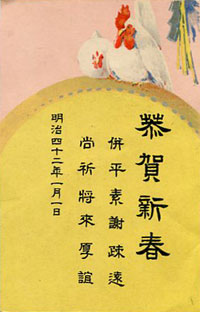 恭賀新春
併平素謝疎遠
尚祈將來厚誼
明治四十二年一月一日